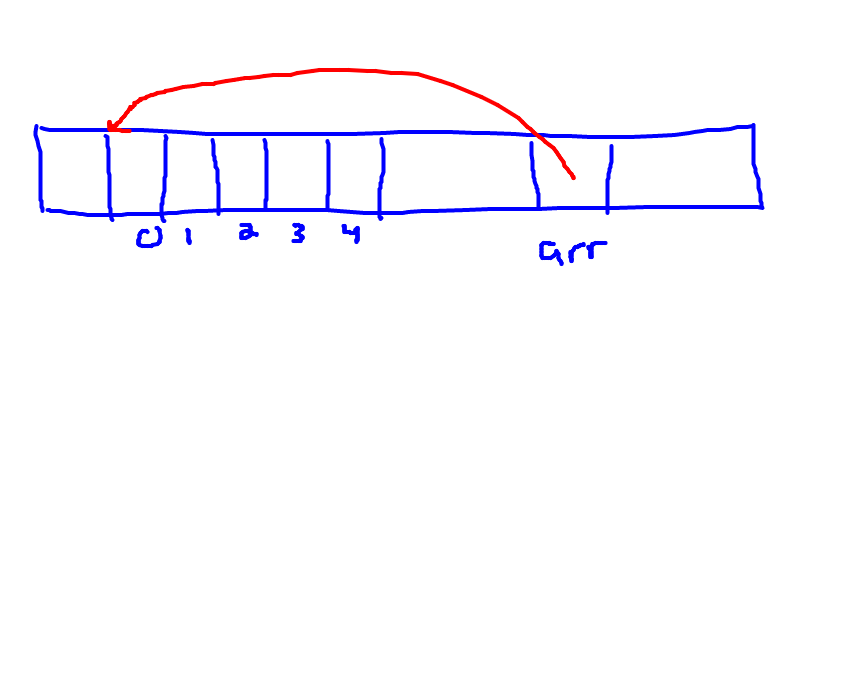 0 1 2 3 4
arr